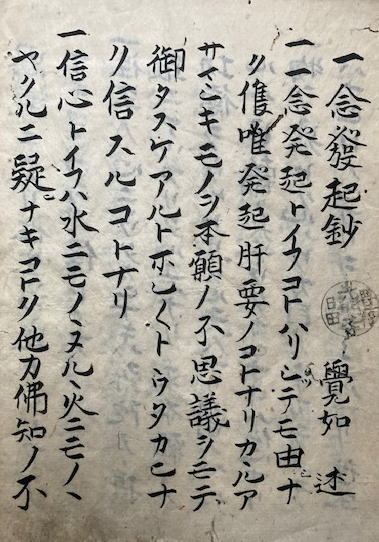 一念發起鈔　覺如　述
一一念発起トイフコトハ テモ由ナ
ク 唯発起肝要ノコトナリカヽルア
サマシキモノヲ本願ノ不思議ヲモテ
御タスケアルト トウタカヒナ
ク信スルコトナリ
一信心トイフハ水ニモノヽヌルヽ火ニモノヽ
ヤクルニ疑ナキコトク他力佛知ノ不